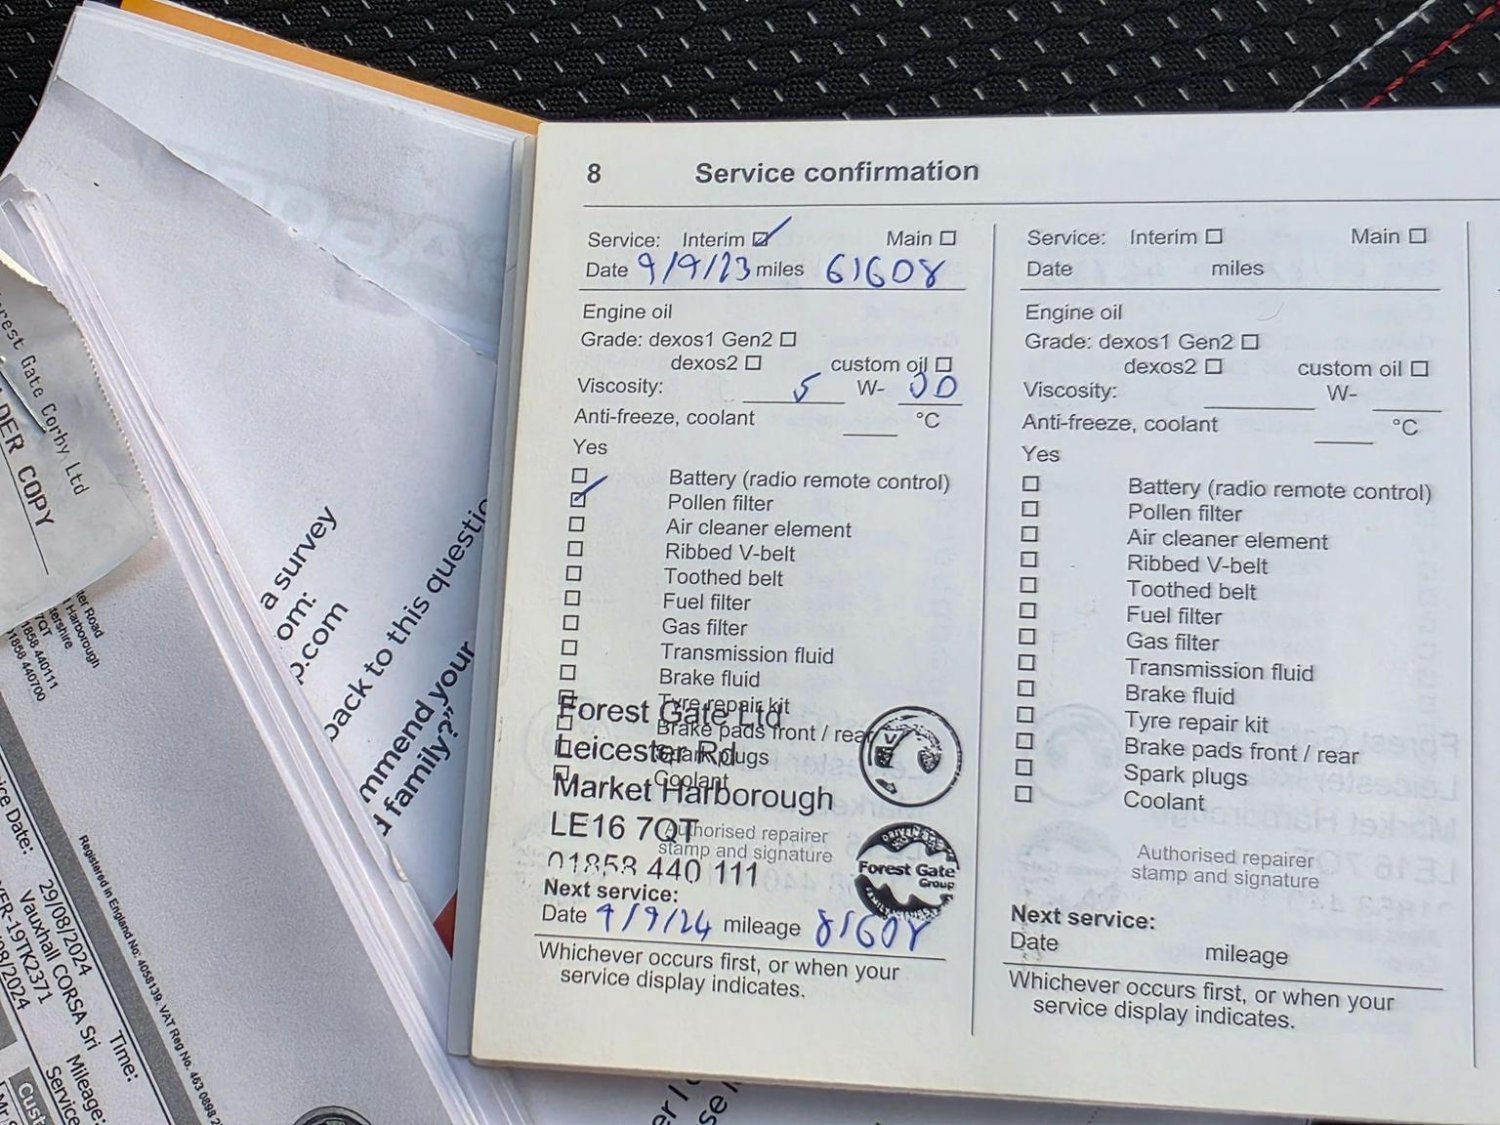 8 Service confirmation
Service: Interim Main
Date 9/9/23 miles 61608
Engine oil
Grade: dexos1 Gen2
dexos2 custom oil
Viscosity: 5 W- 30
Anti-freeze, coolant °C
Yes
Battery (radio remote control)
Pollen filter
Air cleaner element
Ribbed V-belt
Toothed belt
Fuel filter
Gas filter
Transmission fluid
Brake fluid
Tyre repair kit
Forest Gate Ltd
Brake pads front / rear
Leicester Rd
Spark plugs
Coolant
Market Harborough
LE16 7QT
Authorised repairer
stamp and signature
01858 440 111
Forest Gate
Group
Next service:
Date 9/9/24 mileage 81608
Whichever occurs first, or when your
service display indicates.
Service: Interim Main
Date miles
Engine oil
Grade: dexos1 Gen2
dexos2 custom oil
Viscosity: W-
Anti-freeze, coolant °C
Yes
Battery (radio remote control)
Pollen filter
Air cleaner element
Ribbed V-belt
Toothed belt
Fuel filter
Gas filter
Transmission fluid
Brake fluid
Tyre repair kit
Brake pads front / rear
Spark plugs
Coolant
Authorised repairer
stamp and signature
Next service:
Date mileage
Whichever occurs first, or when your
service display indicates.
a survey
om:
p.com
back to this questio
mmend your
d family?"
orest Gate Corby Ltd
DER COPY
ter Road
Harborough
7QT
1858 440111
01858 440700
Registered in England No: 4058139. VAT Reg No. 463 0898 2
ice Date: 29/08/2024 Time:
Vauxhall CORSA Sri Mileage:
ER-19TK2371 Service
/08/2024
Cust
Mr